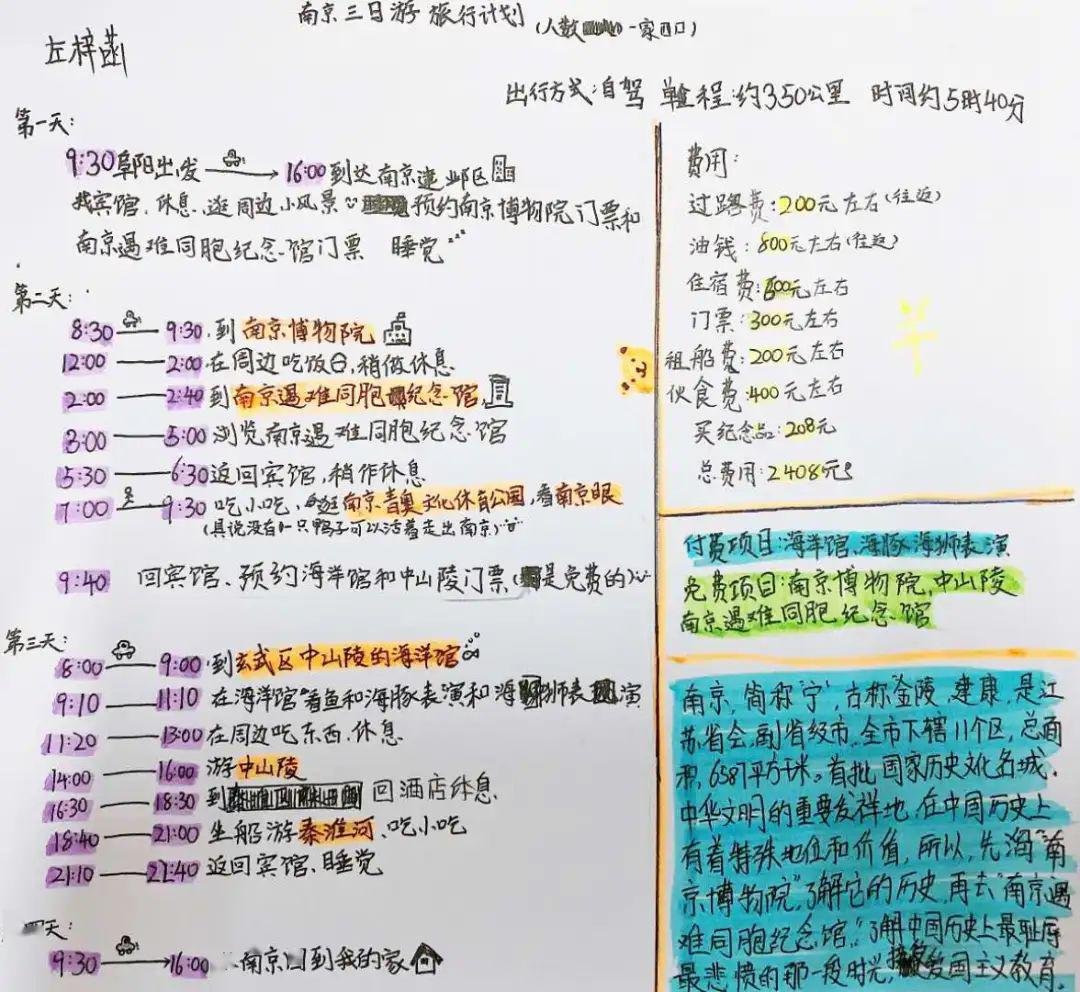 南京三日游 旅行计划(人数 一家四口)
左梓菡
出行方式:自驾 单程:约350公里 时间约5时40分
第一天:
9:30阜阳出发 16:00到达南京建邺区
找宾馆、休息、逛周边小风景 预约南京博物院门票和
南京遇难同胞纪念馆门票 睡觉
第二天:
8:30 9:30.到南京博物院
12:00 2:00.在周边吃饭,稍做休息
2:00 2:40到南京遇难同胞纪念馆
3:00 5:00浏览南京遇难同胞纪念馆
5:30 6:30返回宾馆,稍作休息
7:00 9:30吃小吃,逛南京青奥文化体育公园,看南京眼
(具说没有一只鸭子可以活着走出南京)
9:40 回宾馆、预约海洋馆和中山陵门票(是免费的)
第三天:
8:00 9:00到玄武区中山陵的海洋馆
9:10 11:10在海洋馆看鱼和海豚表演和海狮表演
11:20 13:00在周边吃东西、休息
14:00 16:00游中山陵
16:30 18:30到 回酒店休息
18:40 21:00坐船游秦淮河、吃小吃
21:10 21:40返回宾馆、睡觉
四天:
9:30 16:00 南京回到我的家
费用:
过路费:200元左右(往返)
油钱:800元左右(往返)
住宿费:元左右
门票:300元左右
租船费:200元左右
伙食费:400元左右
买纪念品:208元
总费用:2408元
羊
付费项目:海洋馆、海豚海狮表演
免费项目:南京博物院,中山陵
南京遇难同胞纪念馆
南京,简称"宁",古称"金陵、建康,是江
苏省会,副省级市、全市下辖11个区,总面
积,6587平方千米。首批国家历史文化名城.
中华文明的重要发祥地、在中国历史上
有着特殊地位和价值,所以,先逛"南
京博物院",了解它的历史,再去"南京遇
难同胞纪念馆"了解中国历史上最耻辱
最悲愤的那一段时光,接受爱国主义教育.